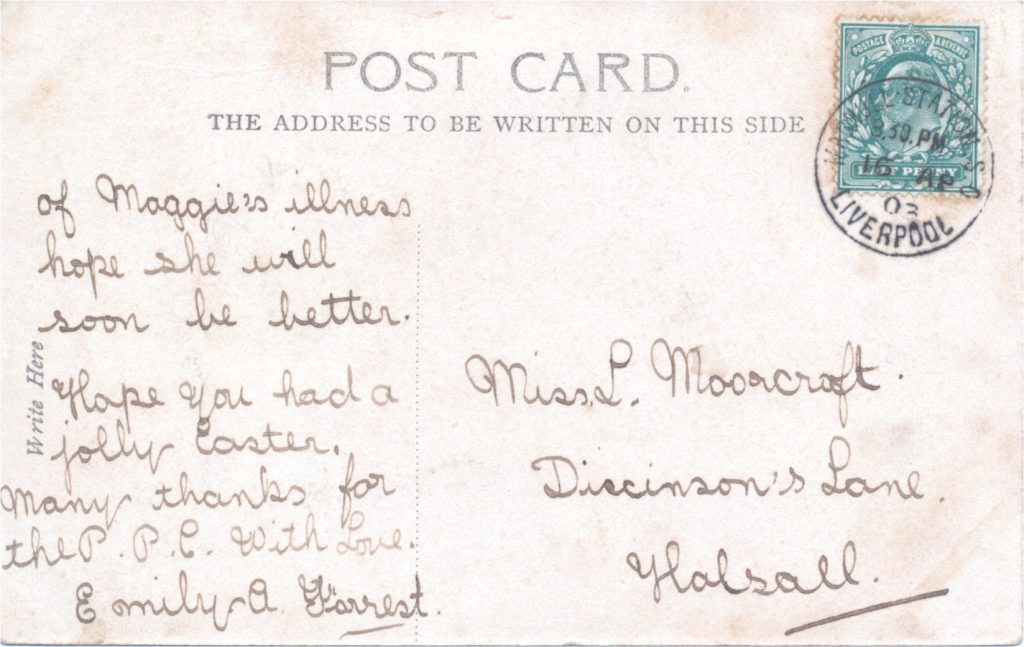 POST CARD.
THE ADDRESS TO BE WRITTEN ON THIS SIDE
POSTAGE & REVENUE
HALF PENNY
9.30.PM
16 AP
03
LIVERPOOL
Write Here
of Maggie's illness
hope she will
soon be better.
Hope you had a
jolly Easter.
Many thanks for
the P.P.C. With Love.
Emily A. Forrest.
Miss L. Moorcroft.
Diccinson's Lane.
Halsall.